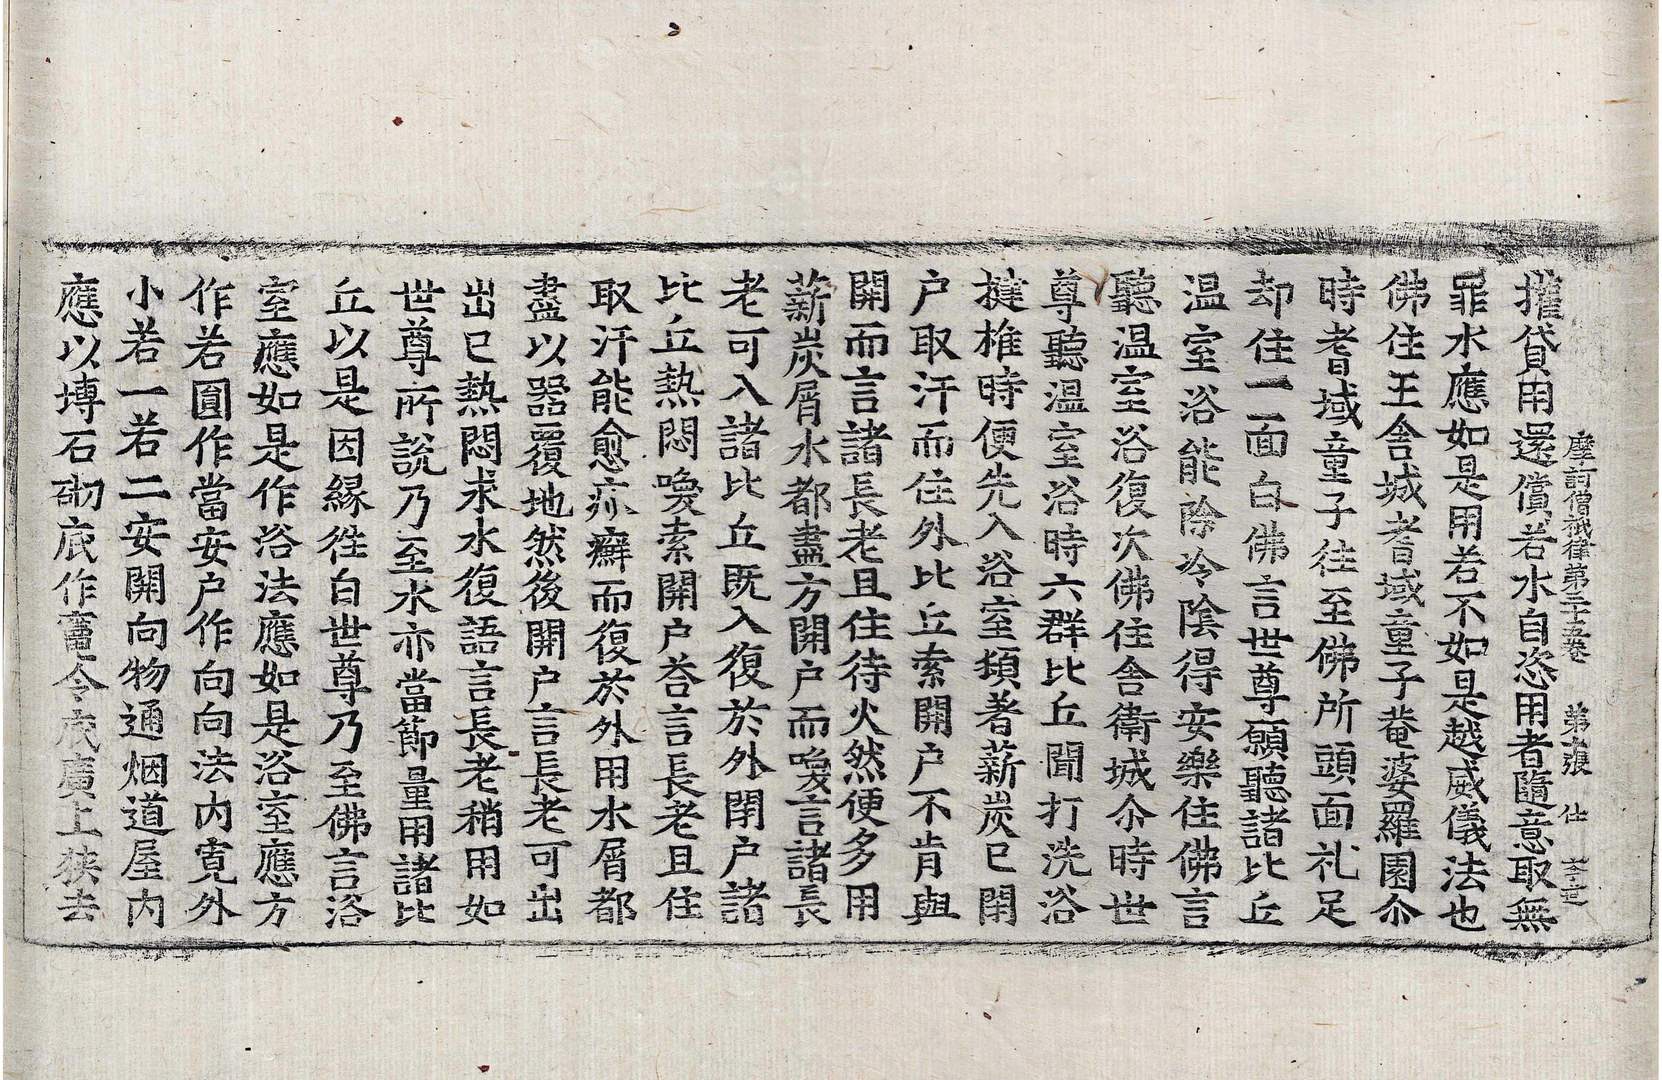 摩訶僧祇律第三十五卷　第九張　仕
摧貸用還償若水自恣用者隨意取無
罪水應如是用若不如是越威儀法也
佛住王舍城耆域童子菴婆羅園尒
時耆域童子往至佛所頭面礼足
却住一面白佛言世尊願聽諸比丘
温室浴能除冷陰得安樂住佛言
聽温室浴復次佛住舍衛城尒時世
尊聽温室浴時六群比丘聞打洗浴
揵椎時便先入浴室頻著薪炭已閉
户取汗而住外比丘索開户不肯與
開而言諸長老且住待火然便多用
薪炭屑水都盡方開户而喚言諸長
老可入諸比丘既入復於外閉户諸
比丘熱悶喚索開户荅言長老且住
取汗能愈疥癬而復於外用水屑都
盡以器覆地然後開户言長老可出
出已熱悶求水復語言長老稍用如
世尊所說乃至水亦當節量用諸比
丘以是因緣徃白世尊乃至佛言浴
室應如是作浴法應如是浴室應方
作若圓作當安户作向向法内寛外
小若一若二安開向物通烟道屋内
應以塼石砌底作薔令底廣上狹去